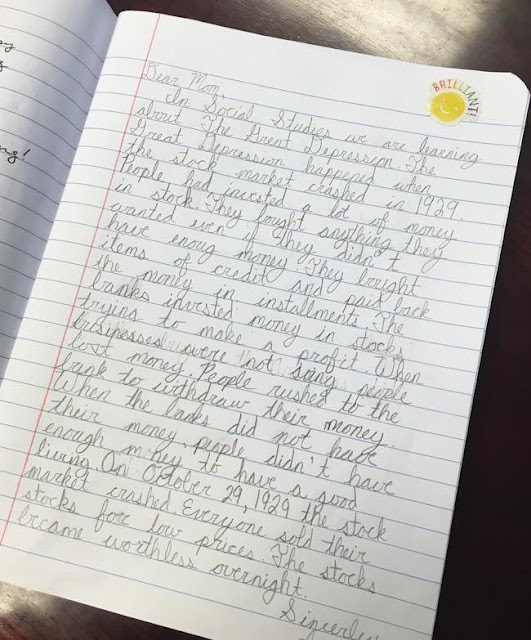 ng!
BRILLIANT!
Dear Mom,
In Social Studies we are learning
about The Great Depression. The
Great Depression happened when
the stock market crashed in 1929.
People had invested a lot of money
in stock. They bought anything they
wanted even if they didn't
have enoug money. They bought
items of credit and paid back
the money in installments. The
banks invested money in stocks
trying to make a profit. When
businesses were not people
lost money. People rushed to the
bank to withdraw their money.
When the did not have
their money, people didn't have
enough money to have a good
living. On October 29, 1929 the stock
market crashed. Everyone sold their
stocks for low prices. The stocks
became worthless overnight.
Sincerely